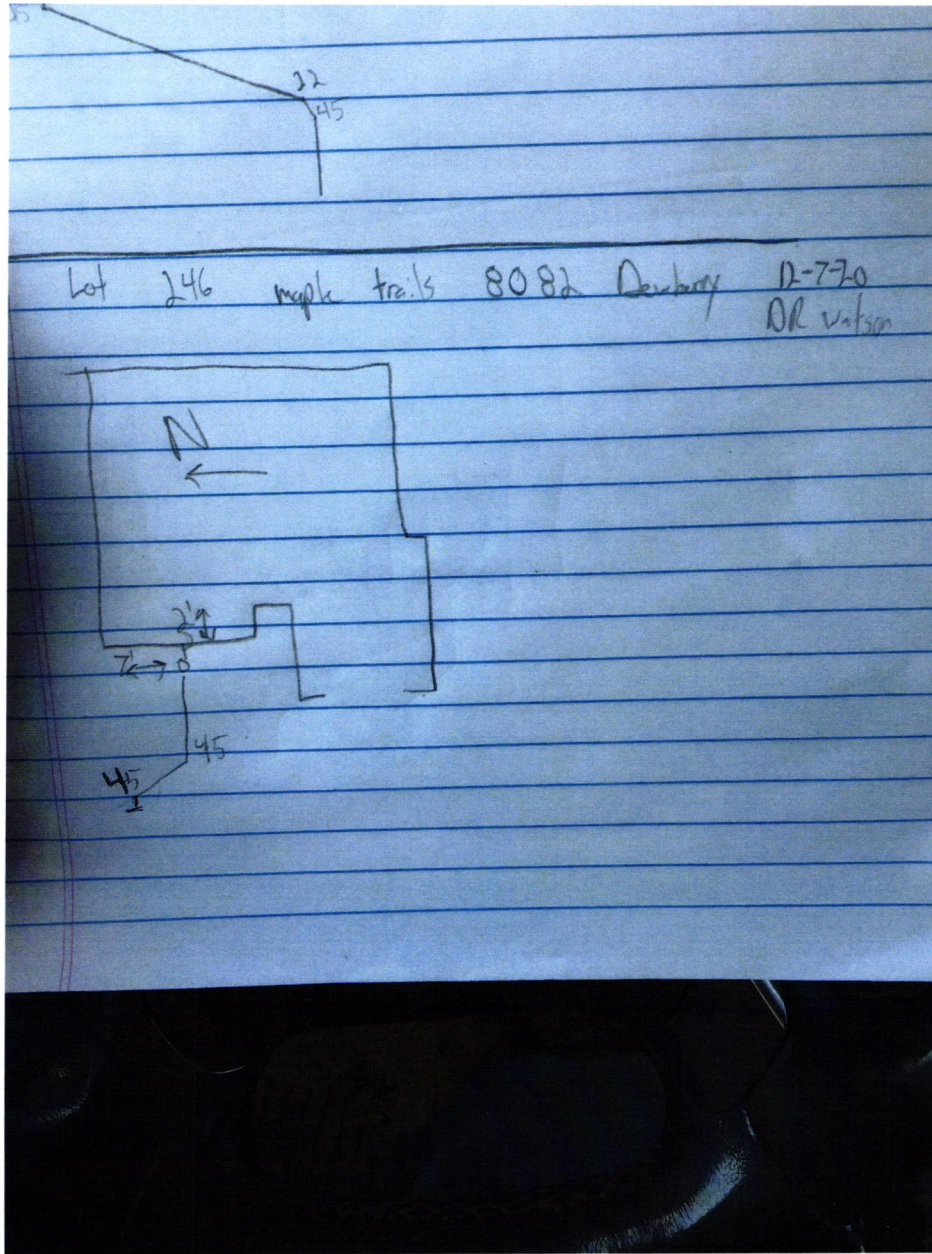 22
45
Lot 246 maple trails 8082 Dewberry 12-7-20
DR Watson
N
2'
7'
45
45